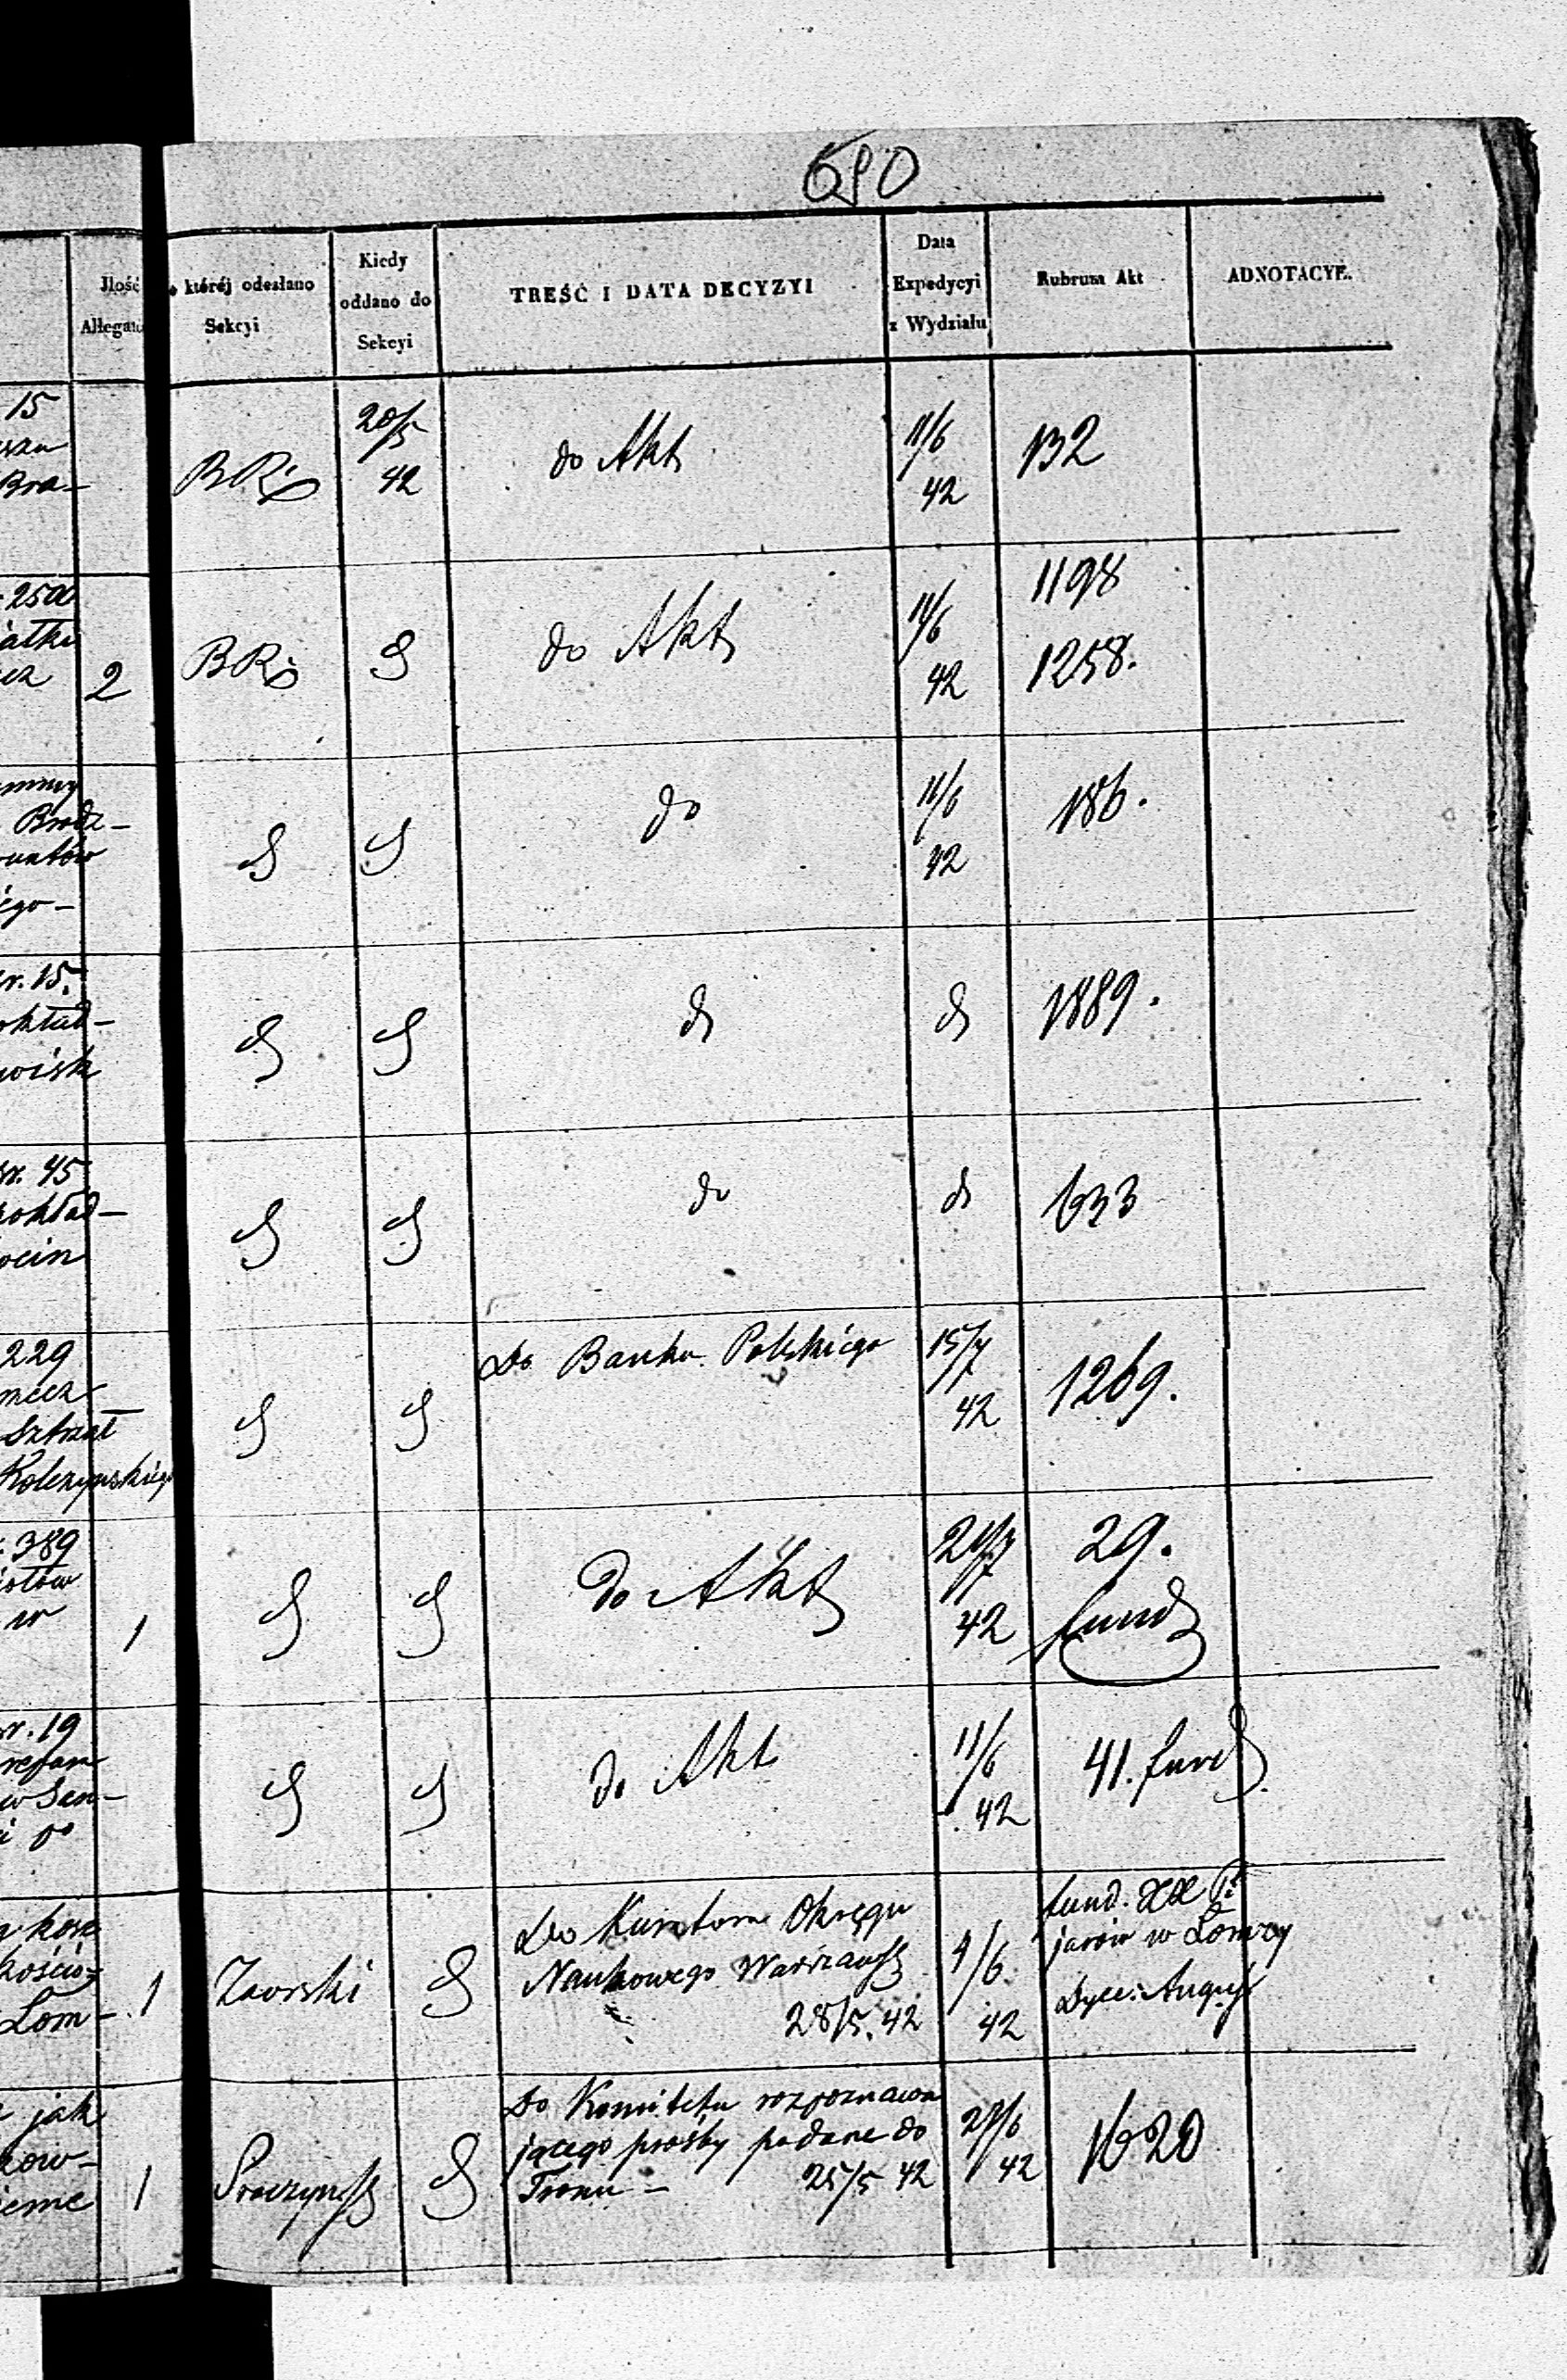 690
Jlość
Allegató
któréj odesłano
Sekcyi
Kiedy
oddano do
Sekcyi
TREŚĆ I DATA DECYZYI
Data
Expedycyi
z Wydziału
Rubrum Akt
ADNOTACYE.
15
Bra-
BR
20/5
42
do Akt
11/6
42
132
2500
iatki
2
BR
do Akt
11/6
42
1198
1258.
Brodz-
untów
ego-
do
11/6
42
186.
r. 15.
okład-
wisk
do
do
1889.
45
okład-
ocin
do
do
633
229
Sztrzał
Kolczyńskiego
Do Banku Polskiego
15/7
42
1269.
389
w
1
do Akt
21/7
42
29.
fund
r. 19
w San-
i po
do Akt
11/6
42
41. fund
kościo-
Łom-
1
Zaorski
Do Kuratora Okręgu
Naukowego Warszaws
28/5. 42
4/6
42
fund. XX Pi
jarów w Łomży
Dyec: August
jak
kow-
ieme
1
Do Komitetu rozpoznawa
jącego prośby podane do
Tronu - 25/5 42
27/6
42
1620